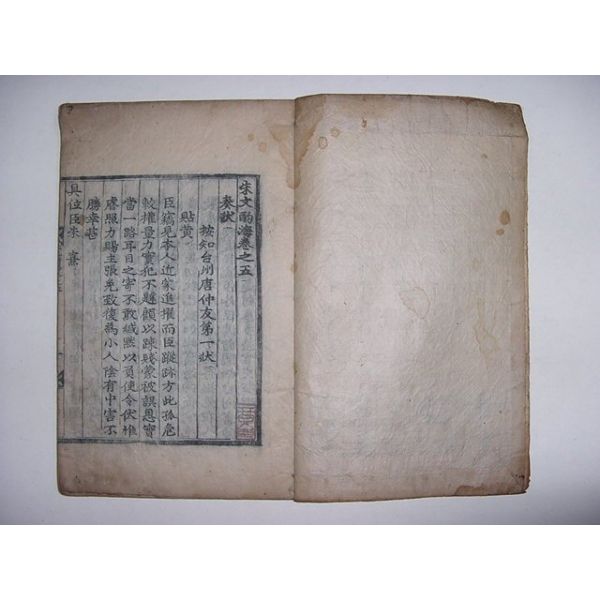 朱文酌海卷之五
奏狀
按知台州唐仲友第一狀
貼黃
臣竊見本人近蒙進擢而臣蹤跡方此孤危
較權量力實犯不韙顧以踈賤蒙被誤恩實
當一路耳目之寄不敢緘黙以負使令伏惟
睿照力賜主張免致復爲小人陰有中害不
勝幸甚
具位臣朱 熹